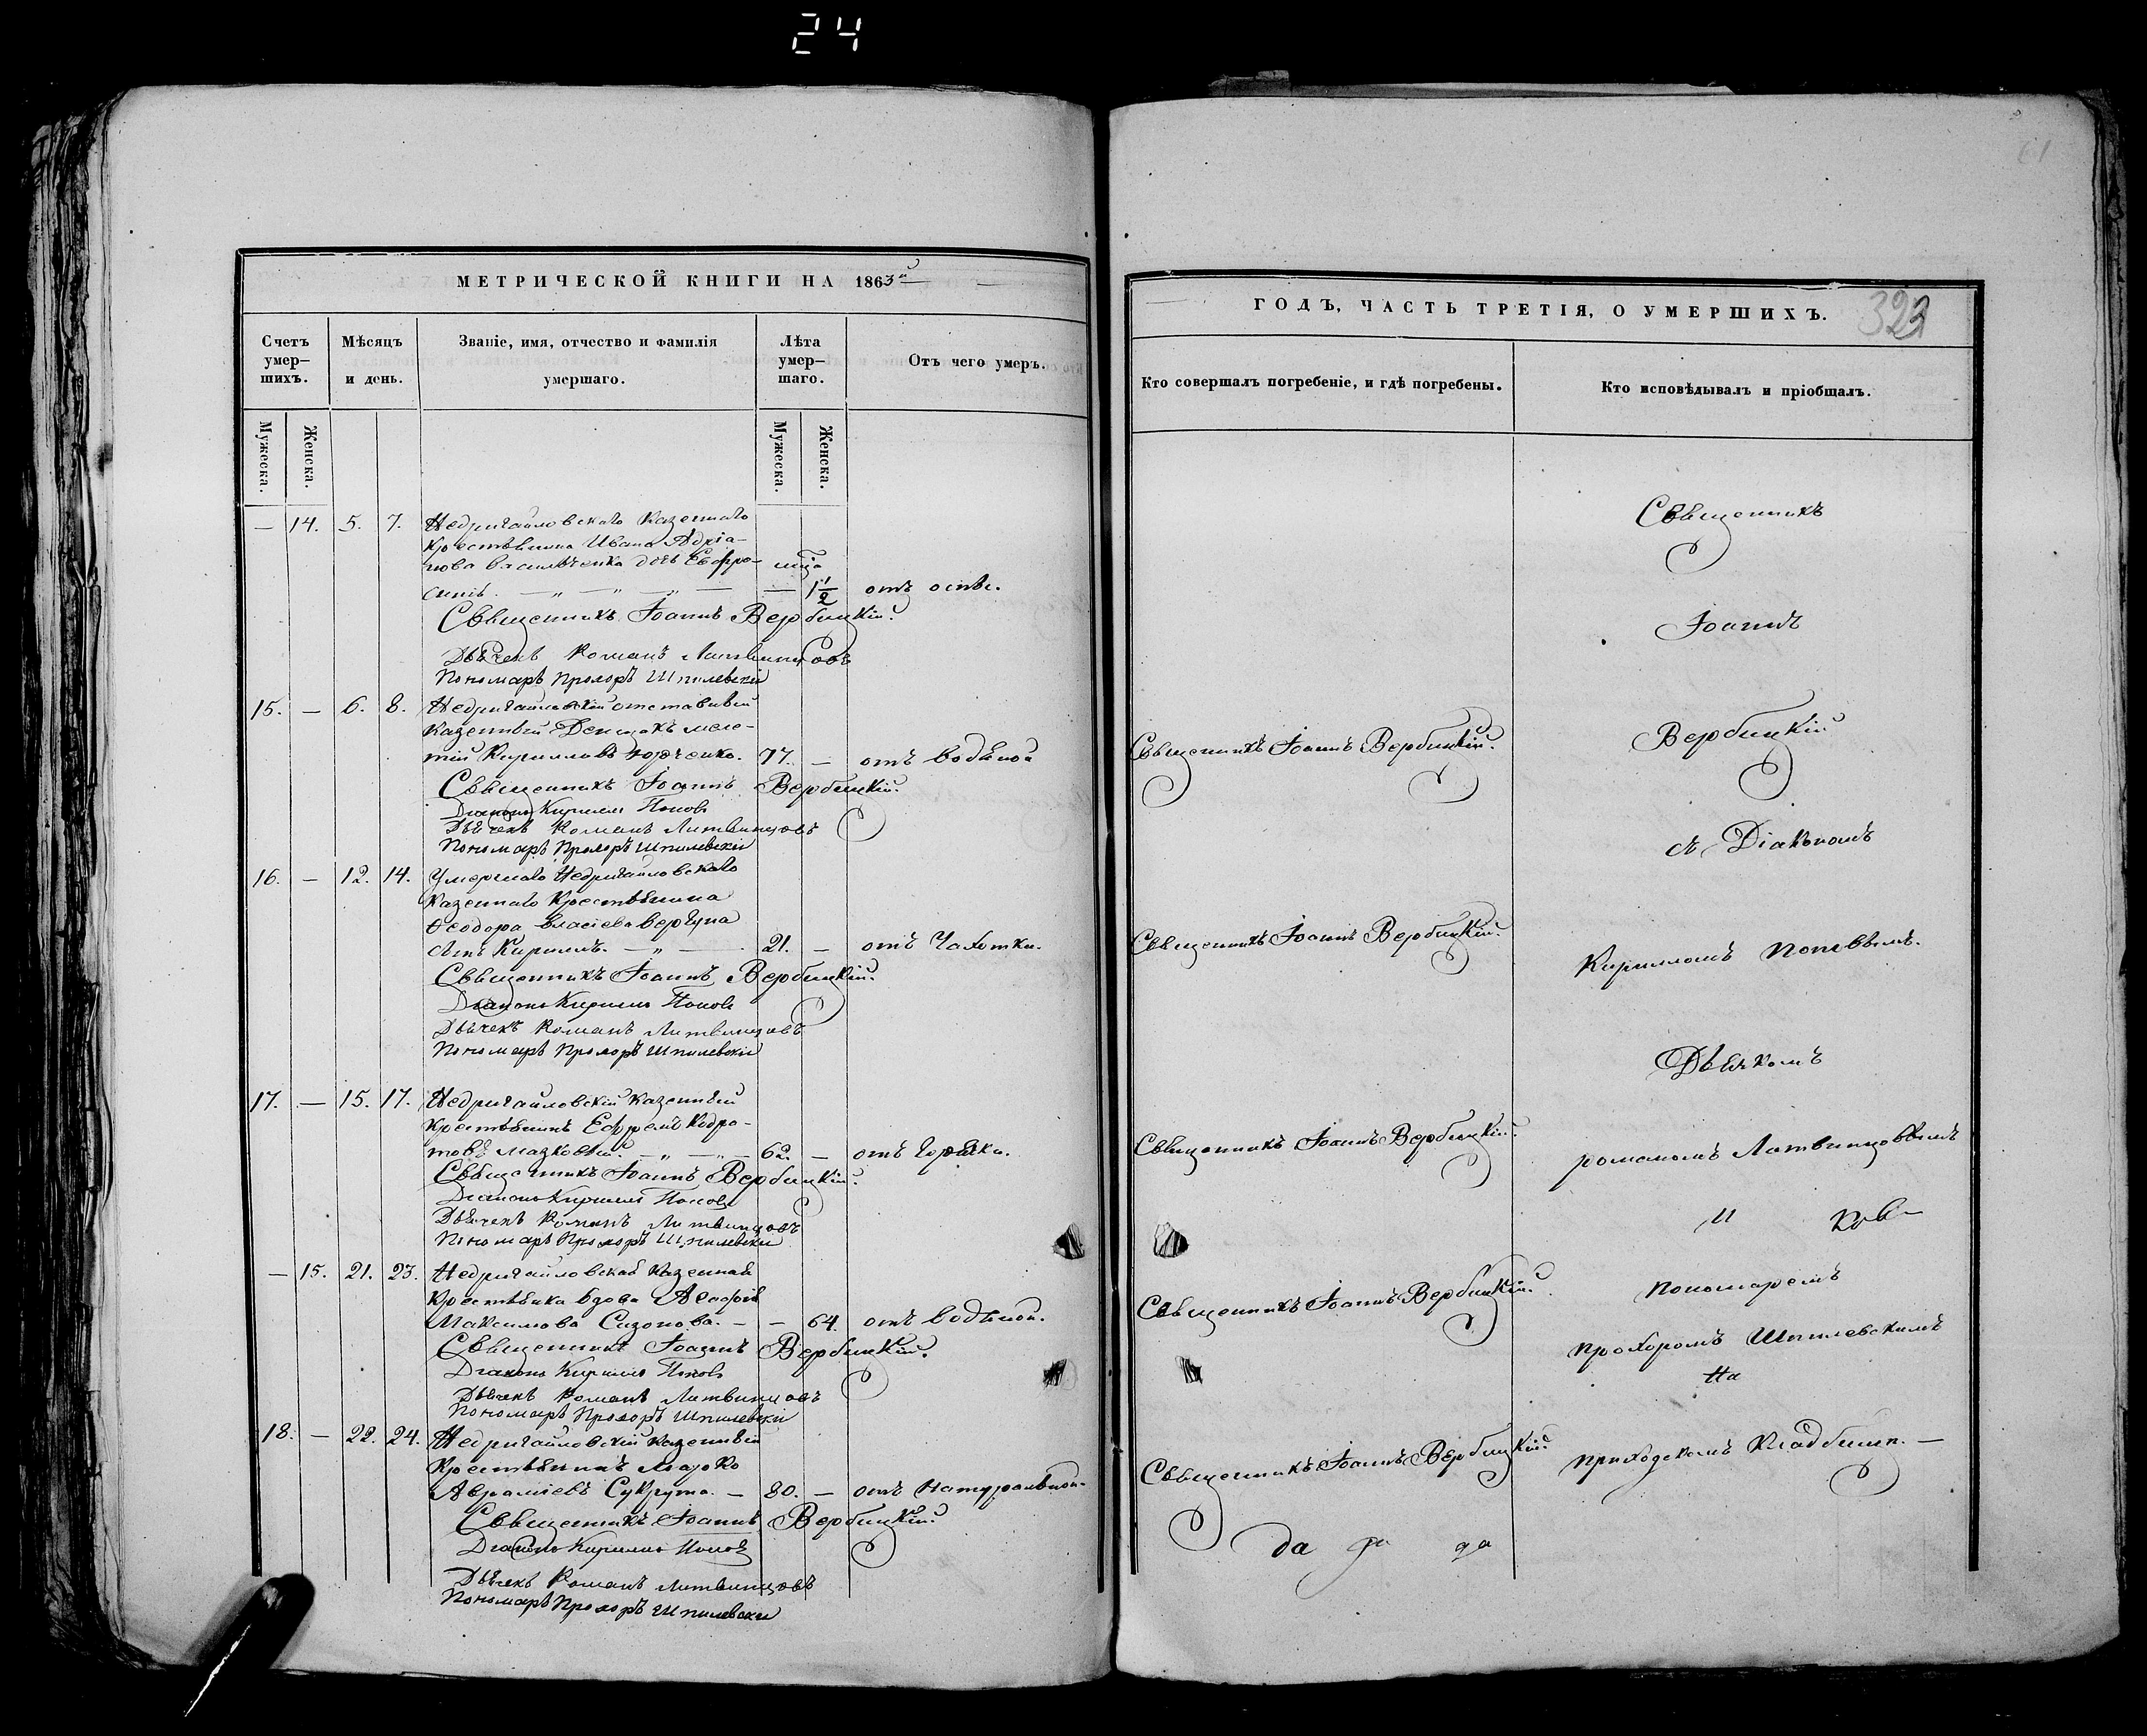 24
61
МЕТРИЧЕСКОЙ КНИГИ НА 1863й
Счетъ умер—шихъ.
Мѣсяцъ и день.
Званіе, имя, отчество и фамилія умершаго.
Лѣта умер—шаго.
Отъ чего умеръ.
Мужеска.
Женска.
Мужеска.
Женска.
— 14. 5. 7. Недригайловскаго Казеннаго
Крестьянина Ивана Адріа-
нова дочь Евфро-
синія. — 1 1/2 отъ оспы.
Священникъ Іоаннъ Вербицкій.
Дьячекъ Романъ Литвинцовъ
Пономарь Прохоръ Шпилевскій
15. — 6. 8. Недригайловскій отставный
Казенный Денщикъ Меле-
тій Кирилловъ Юрченко. 77. — отъ водяной
Священникъ Іоаннъ Вербицкій.
Діаконъ Кириллъ Поповъ
Дьячекъ Романъ Литвинцовъ
Пономарь Прохоръ Шпилевскій
16. — 12. 14. Умершаго Недригайловскаго
Казеннаго Крестьянина
Ѳеодора Власіева Вергуна
сынъ Кириллъ. — „ — 21. — отъ Чахотки.
Священникъ Іоаннъ Вербицкій.
Діаконъ Кириллъ Поповъ
Дьячекъ Романъ Литвинцовъ
Пономарь Прохоръ Шпилевскій
17. — 15. 17. Недригайловскій Казенный
Крестьянинъ Ефремъ Кодра-
товъ Мазковый. — „ — „ — 62. — отъ Горячки.
Священникъ Іоаннъ Вербицкій.
Діаконъ Кириллъ Поповъ
Дьячекъ Романъ Литвинцовъ
Пономарь Прохоръ Шпилевскій
— 15. 21. 23. Недригайловская Казенная
Крестьянка вдова Агафія
Максимова Сизонова. — — 64. отъ водяной.
Священникъ Іоаннъ Вербицкій.
Діаконъ Кириллъ Поповъ
Дьячекъ Романъ Литвинцовъ
Пономарь Прохоръ Шпилевскій
18. — 22. 24. Недригайловскій казенный
Крестьянинъ Марко
Авраміевъ Сукрута. — 80. — отъ Натуральной.
Священникъ Іоаннъ Вербицкій.
Діаконъ Кириллъ Поповъ
Дьячекъ Романъ Литвинцовъ
Пономарь Прохоръ Шпилевскій
ГОДЪ, ЧАСТЬ ТРЕТІЯ, О УМЕРШИХЪ.
Кто совершалъ погребеніе, и гдѣ погребены.
Кто исповѣдывалъ и пріобщалъ.
Священникъ Іоаннъ Вербицкій.
Священникъ Іоаннъ Вербицкій.
Священникъ Іоаннъ Вербицкій.
Священникъ Іоаннъ Вербицкій.
Священникъ Іоаннъ Вербицкій.
Священникъ
Іоаннъ
Вербицкій
съ Діакономъ
Кирилломъ Поповымъ.
Дьячкомъ
романомъ Литвинцовымъ
и
Пономаремъ
прохоромъ Шпилевскимъ
На
приходскомъ Кладбищѣ. —